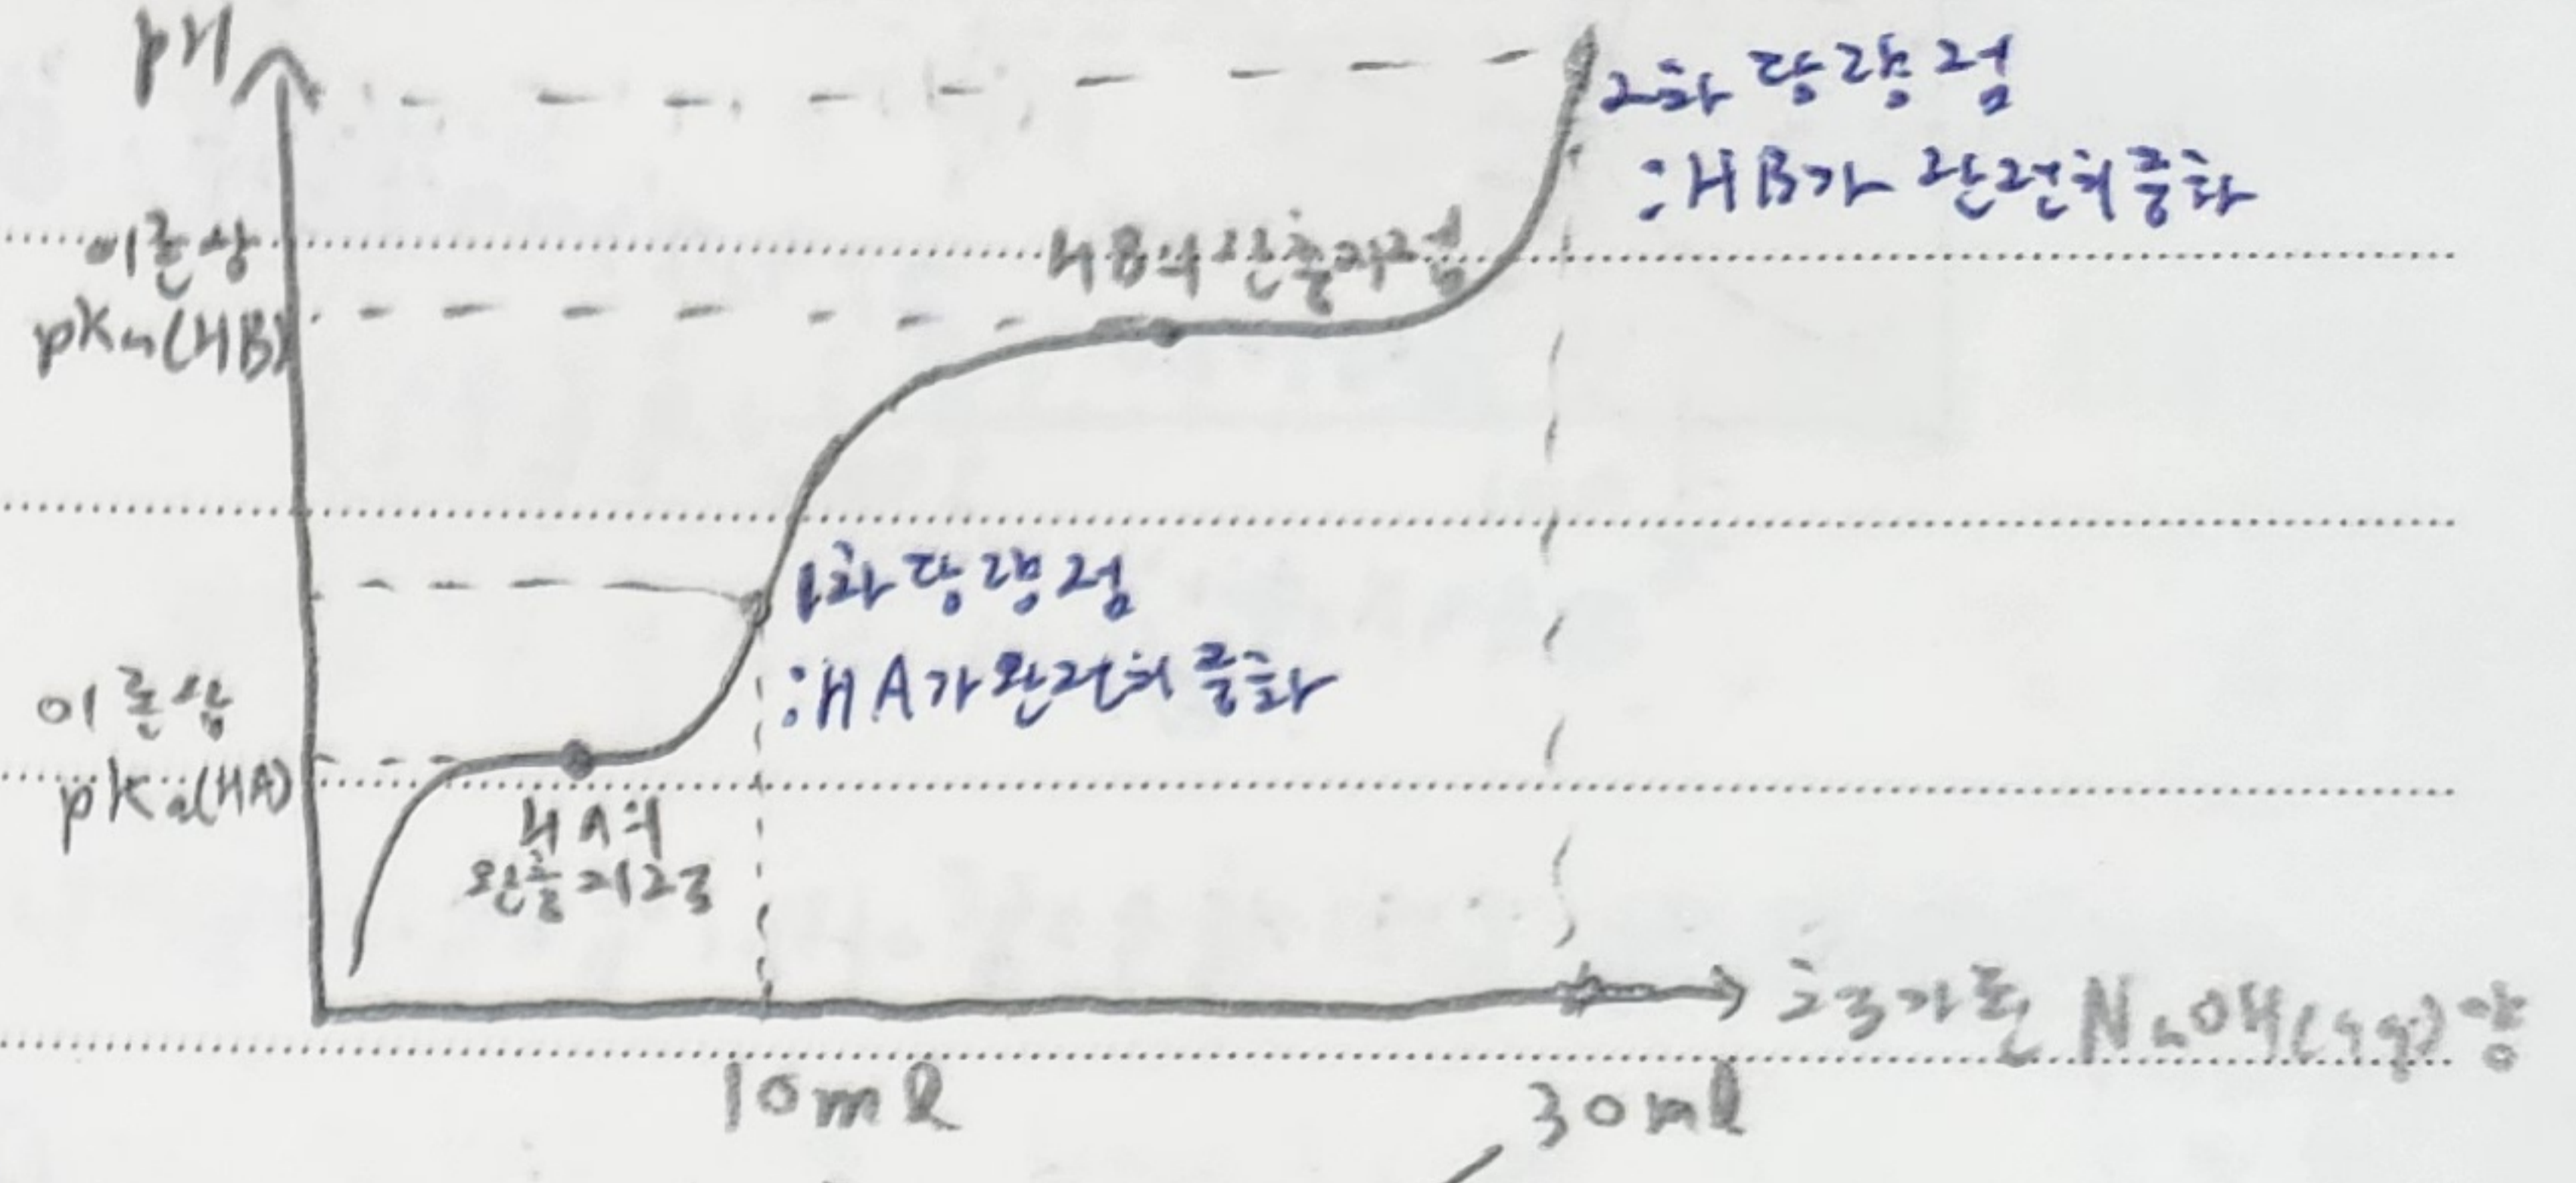 pH
2차 당량점
:HB가 완전히 중화
이론상
pKa(HB)
HB의 완충지점
1차 당량점
:HA가 완전히 중화
이론상
pKa(HA)
HA의
완충지점
추가된 NaOH(aq)양
10ml
30ml